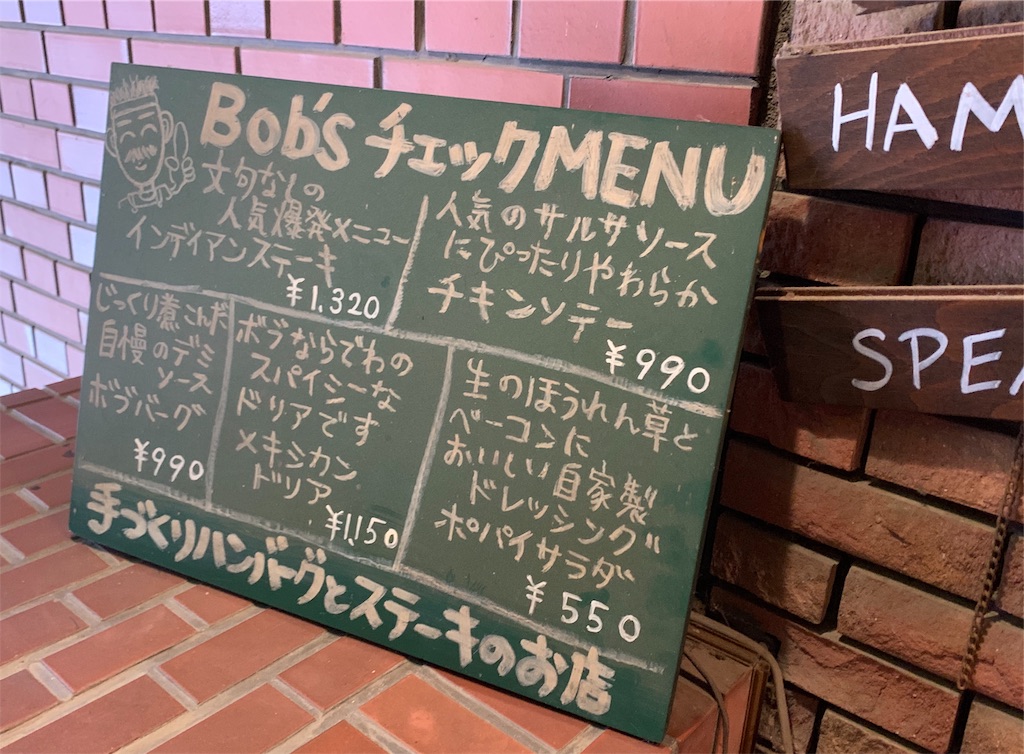 Bob's チェックMENU
文句なしの
人気爆発メニュー
インディアンステーキ
¥1,320
人気のサルサソース
にぴったりやわらか
チキンソテー
¥990
じっくり煮こんだ
自慢のデミ
ソース
ボブバーグ
¥990
ボブならでわの
スパイシーな
ドリアです
メキシカン
ドリア
¥1,150
生のほうれん草と
ベーコンに
おいしい自家製
ドレッシング
ポパイサラダ
¥550
手づくりハンバーグとステーキのお店
HAM
SPE